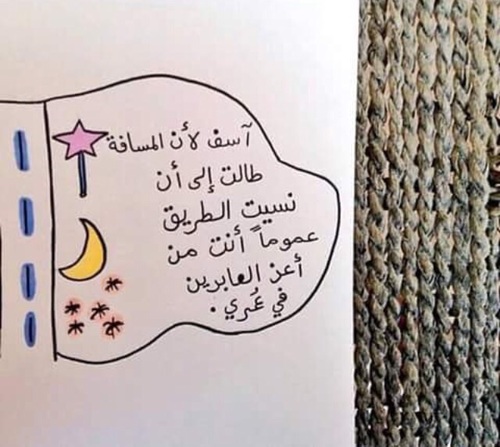 آسف لأن المسافة
طالت إلى أن
نسيت الطريق
عموماً أنت من
أعز العابرين
في عُمري .